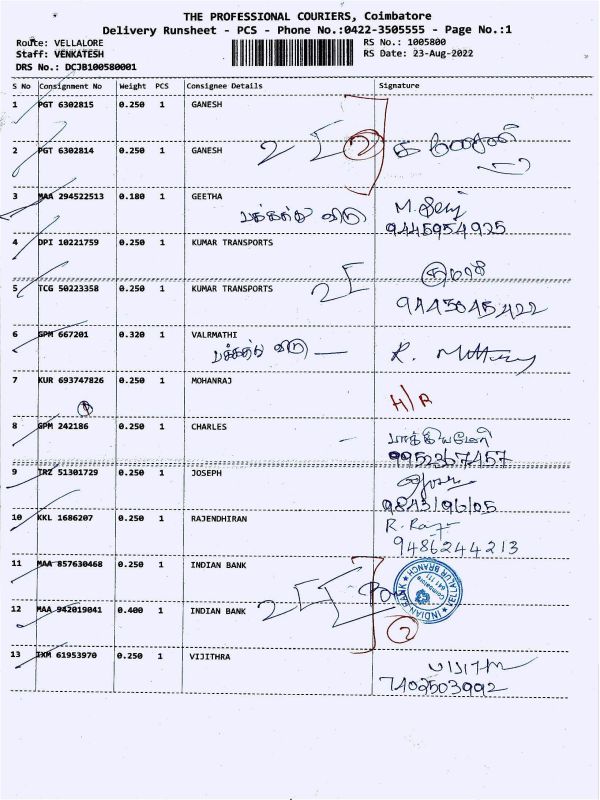 THE PROFESSIONAL COURIERS, Coimbatore
Delivery Runsheet - PCS - Phone No.:0422-3505555 - Page No.:1
Route: VELLALORE RS No.: 1005800
Staff: VENKATESH RS Date: 23-Aug-2022
DRS No.: DCJB100580001
S No Consignment No Weight PCS Consignee Details Signature
1 PGT 6302815 0.250 1 GANESH
2 PGT 6302814 0.250 1 GANESH 2 2
3 MAA 294522513 0.180 1 GEETHA பக்கத்து வீடு
9445954925
4 DPI 10221759 0.250 1 KUMAR TRANSPORTS
5 TCG 50223358 0.250 1 KUMAR TRANSPORTS 2
9445045422
6 GPM 667201 0.320 1 VALRMATHI பக்கத்து வீடு
7 KUR 693747826 0.250 1 MOHANRAJ H/R
8 GPM 242186 0.250 1 CHARLES பாக்கியமேரி
9952367457
9 TRZ 51301729 0.250 1 JOSEPH
9843196105
10 KKL 1686207 0.250 1 RAJENDHIRAN
9486244213
11 MAA 857630468 0.250 1 INDIAN BANK
INDIAN BANK VELLALUR BRANCH Coimbatore 641 111
12 MAA 942019041 0.400 1 INDIAN BANK 2 2
13 IXM 61953970 0.250 1 VIJITHRA
7402503992